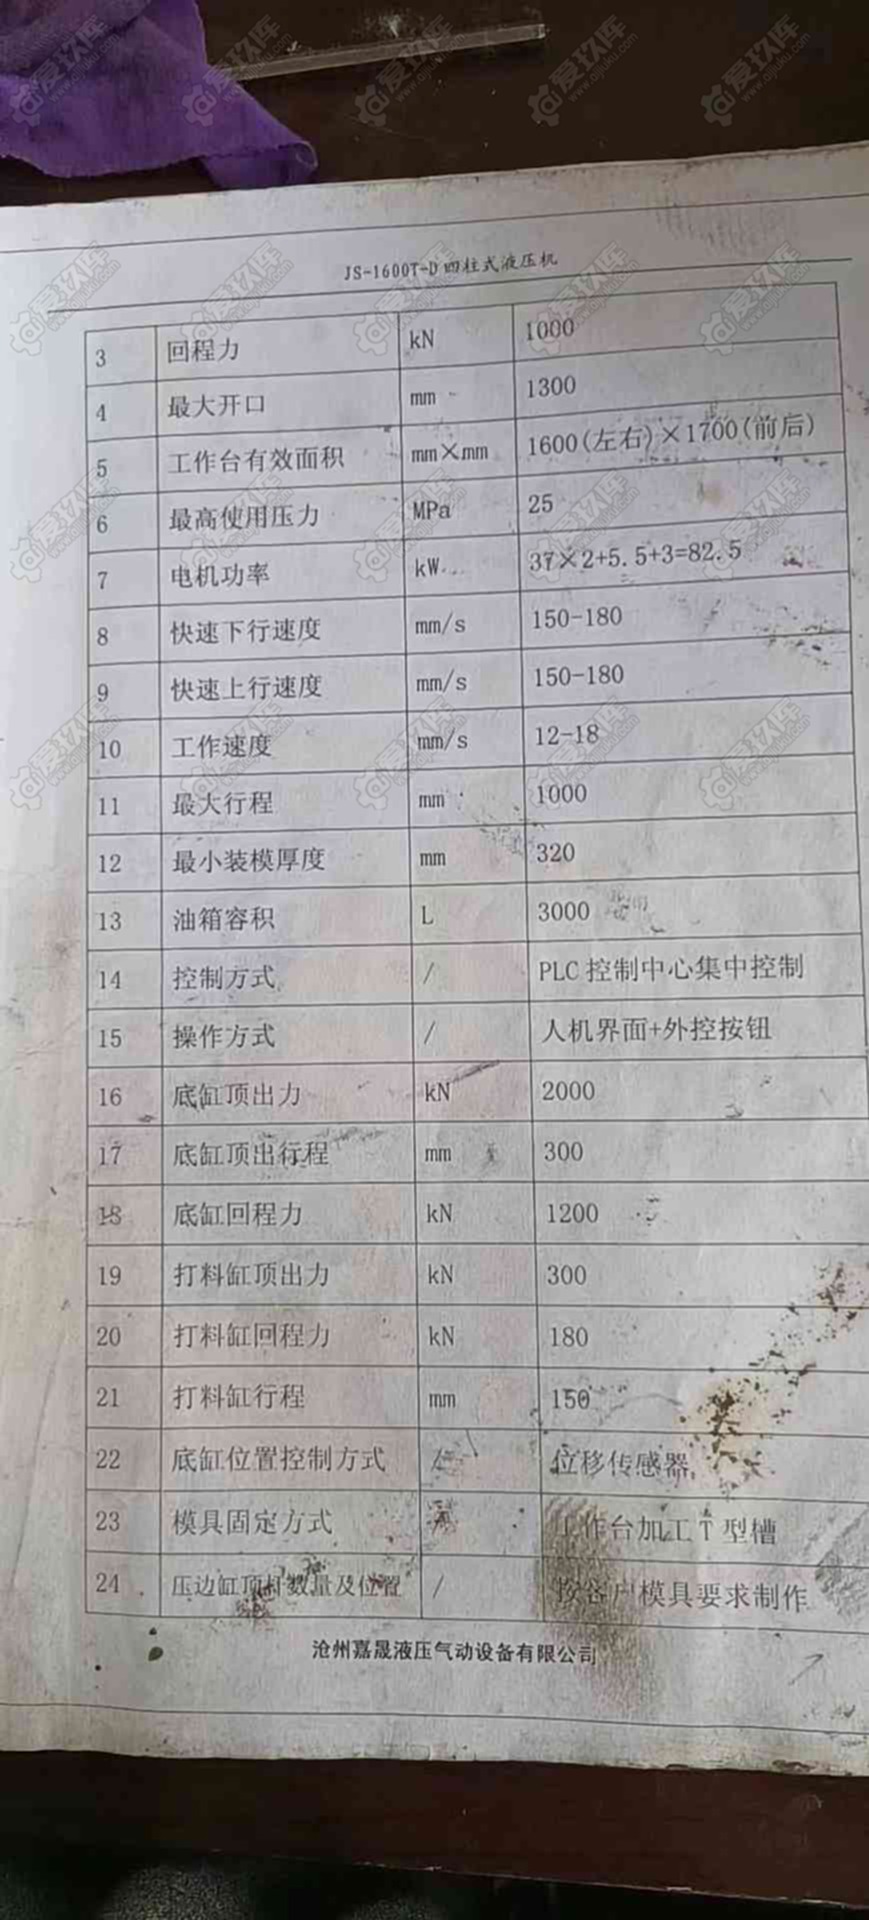 JS-1600T-D 四柱式液压机
3 回程力 kN 1000
4 最大开口 mm 1300
5 工作台有效面积 mm×mm 1600(左右)×1700(前后)
6 最高使用压力 MPa 25
7 电机功率 kW 37×2+5.5+3=82.5
8 快速下行速度 mm/s 150-180
9 快速上行速度 mm/s 150-180
10 工作速度 mm/s 12-18
11 最大行程 mm 1000
12 最小装模厚度 mm 320
13 油箱容积 L 3000
14 控制方式 / PLC 控制中心集中控制
15 操作方式 / 人机界面+外控按钮
16 底缸顶出力 kN 2000
17 底缸顶出行程 mm 300
18 底缸回程力 kN 1200
19 打料缸顶出力 kN 300
20 打料缸回程力 kN 180
21 打料缸行程 mm 150
22 底缸位置控制方式 / 位移传感器
23 模具固定方式 / 工作台加工 T 型槽
24 压边缸顶杆数量及位置 / 按客户模具要求制作
沧州嘉晟液压气动设备有限公司
爱玖库
www.aijiuku.com